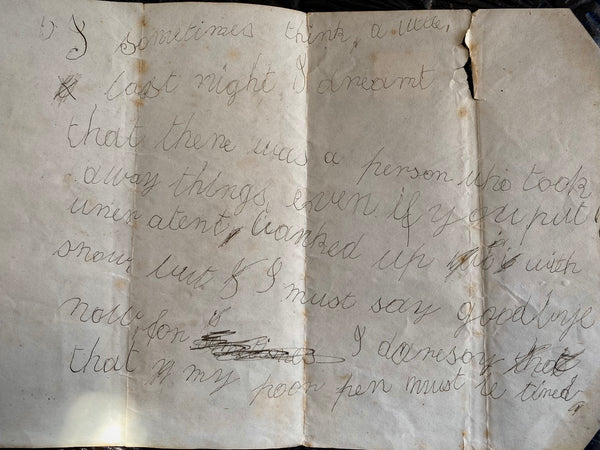 I sometimes think, a little,
last night I dreamt
that there was a person who took
away things, even if you put
under a tent, banked up with
snow, but I must say goodbye
now, for I daresay
that my poor pen must be tired